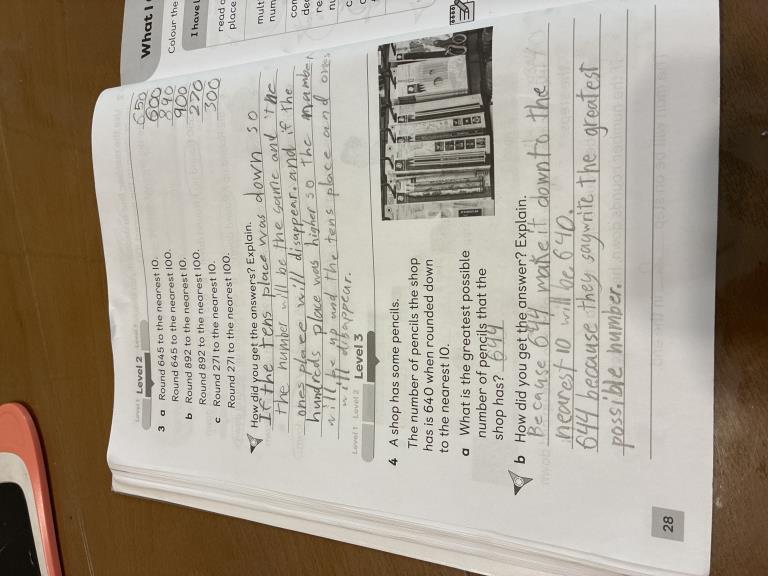 Level 1 Level 2 Level 3
3 a Round 645 to the nearest 10. 650
Round 645 to the nearest 100. 600
b Round 892 to the nearest 10. 890
Round 892 to the nearest 100. 900
c Round 271 to the nearest 10. 270
Round 271 to the nearest 100. 300
How did you get the answers? Explain.
If the tens place was down so
the number will be the same and the
ones place will disappear. and if the
hundreds place was higher so the number
will be up and the tens place and ones
will disappear.
Level 1 Level 2 Level 3
4 A shop has some pencils.
The number of pencils the shop
has is 640 when rounded down
to the nearest 10.
a What is the greatest possible
number of pencils that the
shop has? 644
b How did you get the answer? Explain.
Because 644 make it down to the
nearest 10 will be 640.
644 because they say write the greatest
possible number.
28
What I
Colour the
I have l
read a
place
mult
num
con
dec
re
nu
c